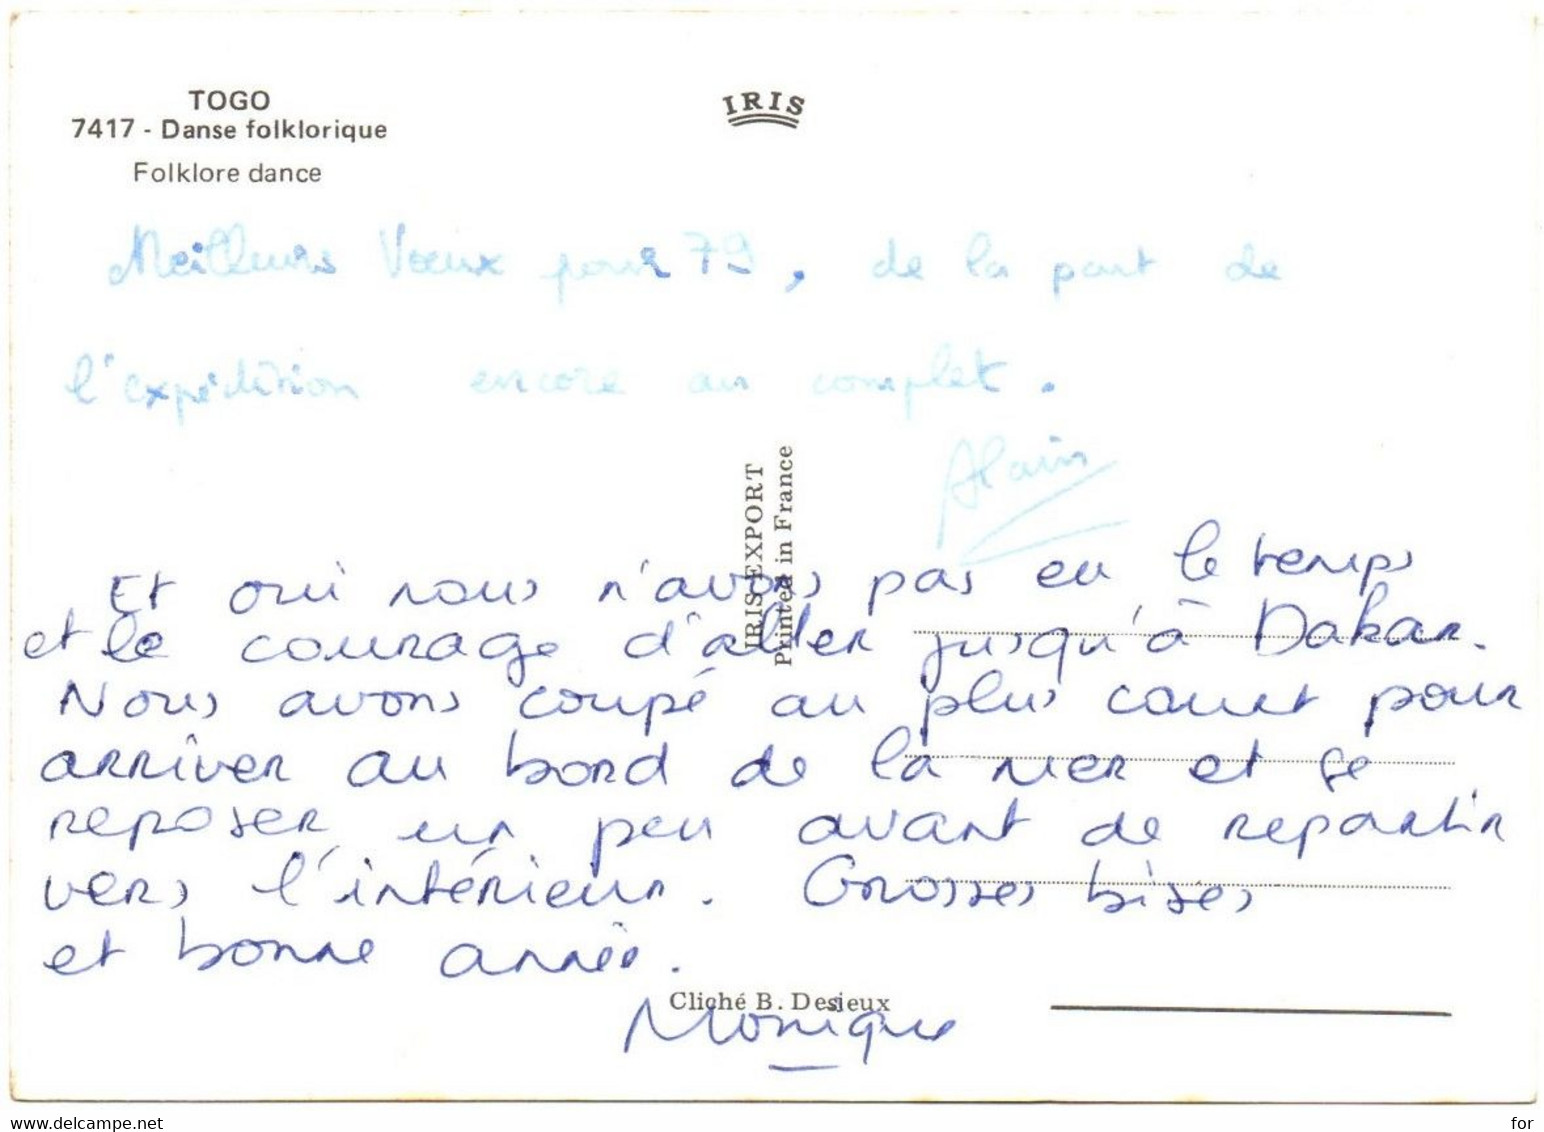 TOGO
7417 - Danse folklorique
Folklore dance
IRIS
Meilleurs Voeux pour 79, de la part de
l'expédition encore au complet.
Alain
IRIS-EXPORT
Printed in France
Et oui nous n'avons pas eu le temps
et le courage d'aller jusqu'à Dakar.
Nous avons coupé au plus court pour
arriver au bord de la mer et se
reposer un peu avant de repartir
vers l'intérieur. Grosses bises
et bonne année.
Cliché B. Desjeux
Monique
www.delcampe.net
for